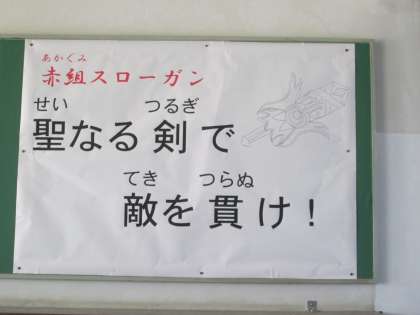 あかぐみ
赤組スローガン
せい つるぎ
聖なる剣で
てき つらぬ
敵を貫け!